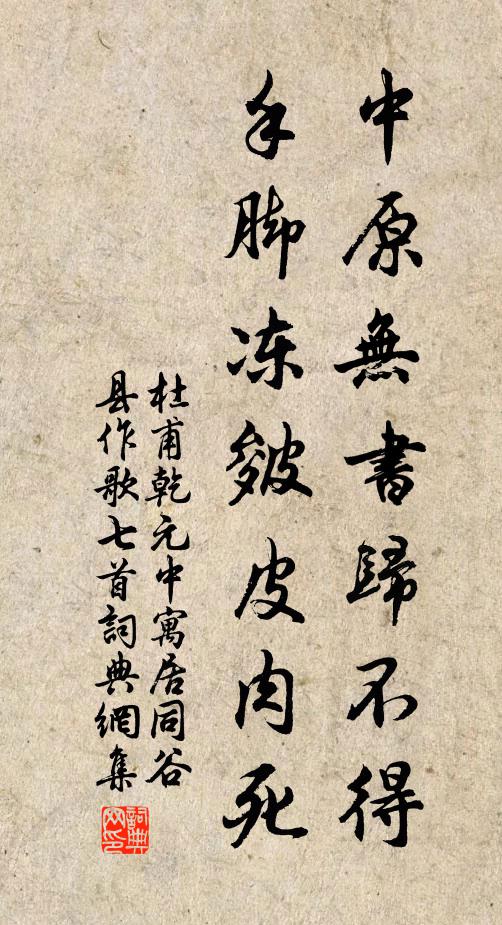 中原無書歸不得
手脚冻皴皮肉死
杜甫乾元中寓居同谷
县作歌七首詞典網集
詞典
网印